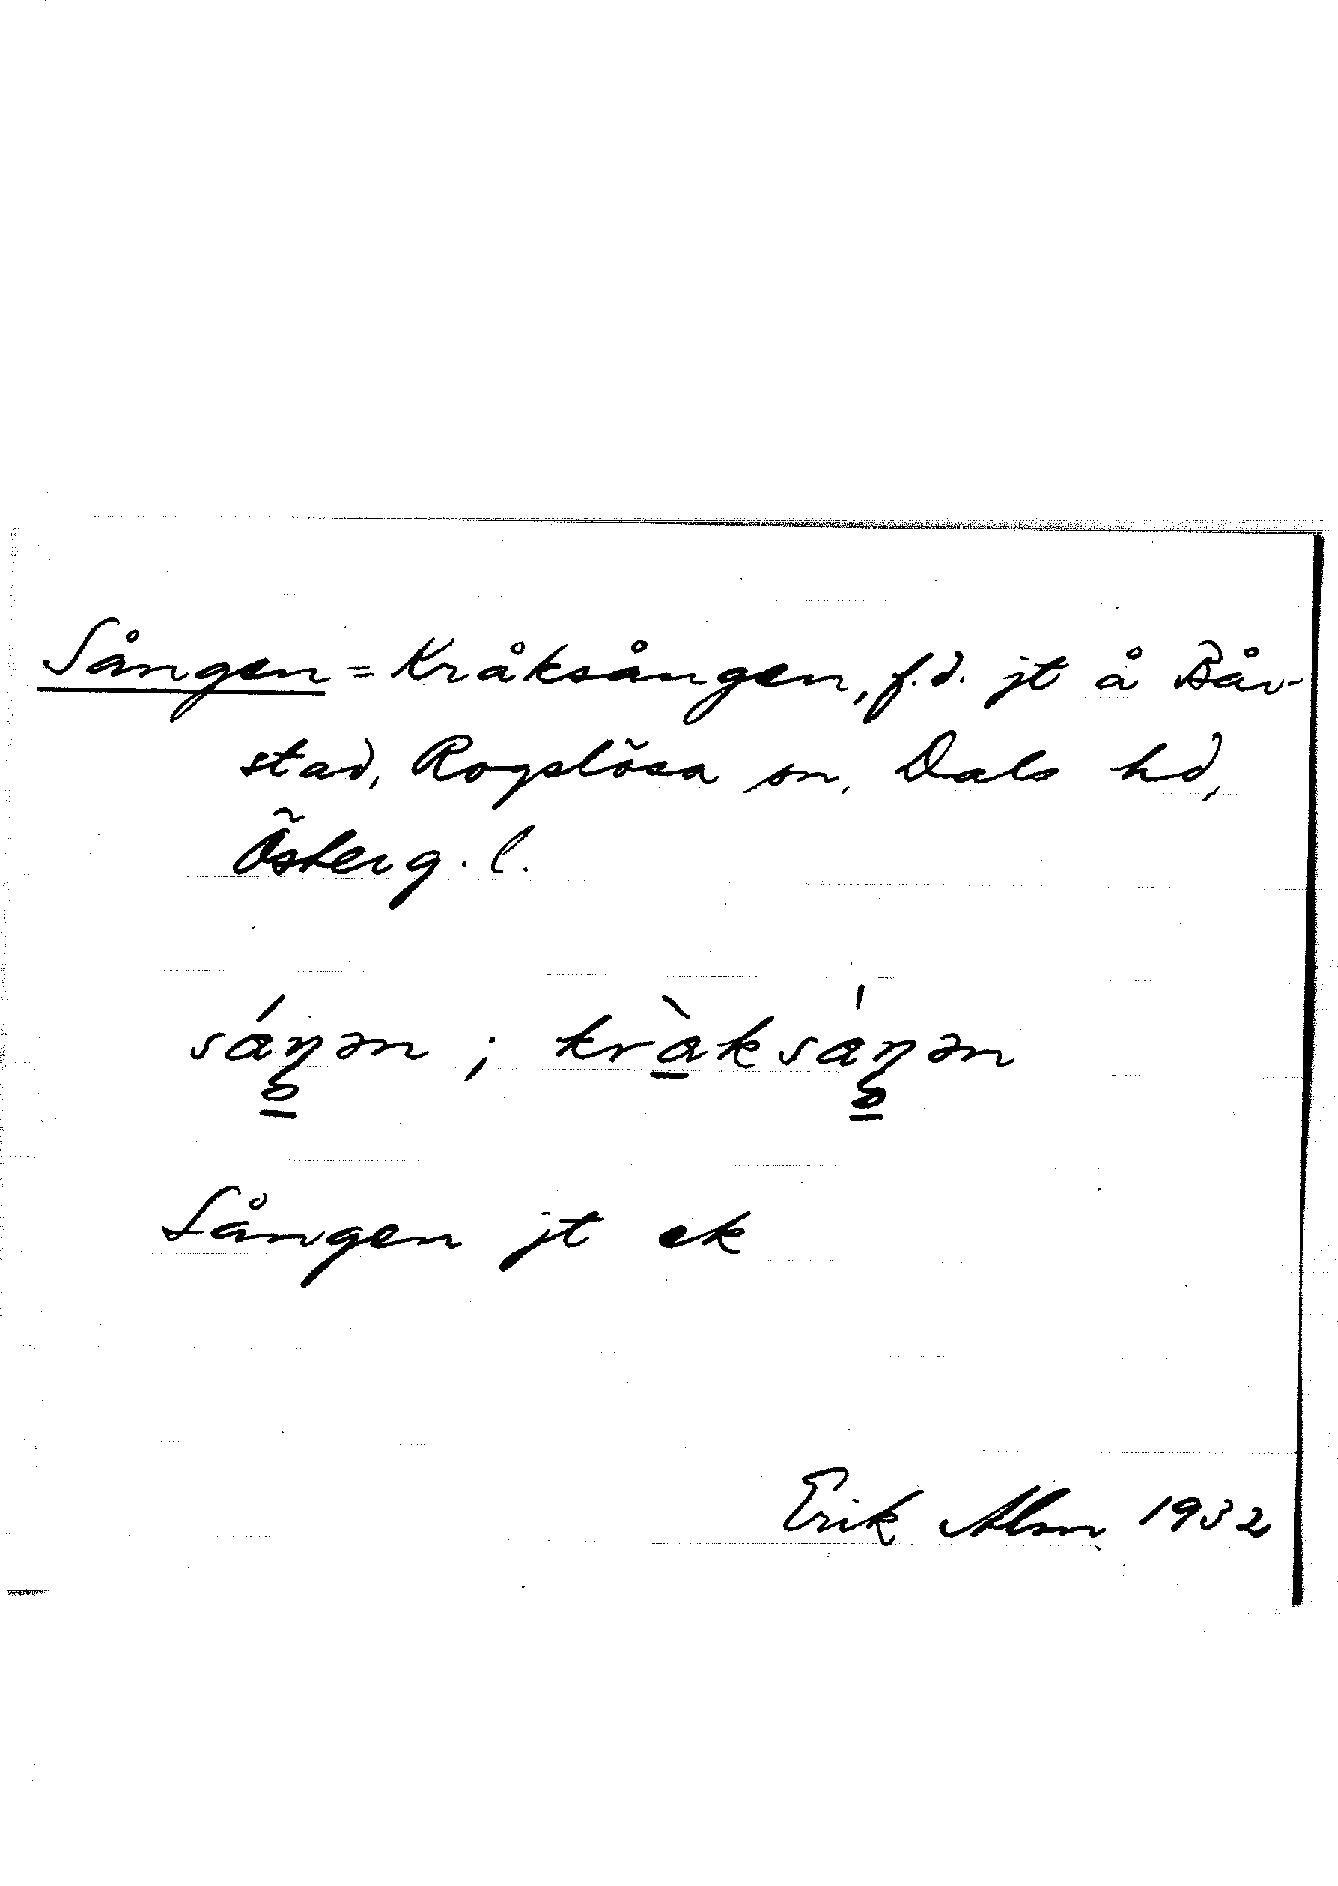 Sången = Kråksången, f.d. jt å Bår-
stad, Rogslösa sn, Dals hd,
Österg.l.
sáŋən ; kràksa̍ŋən
Sången jt ek
Erik Alm 1932